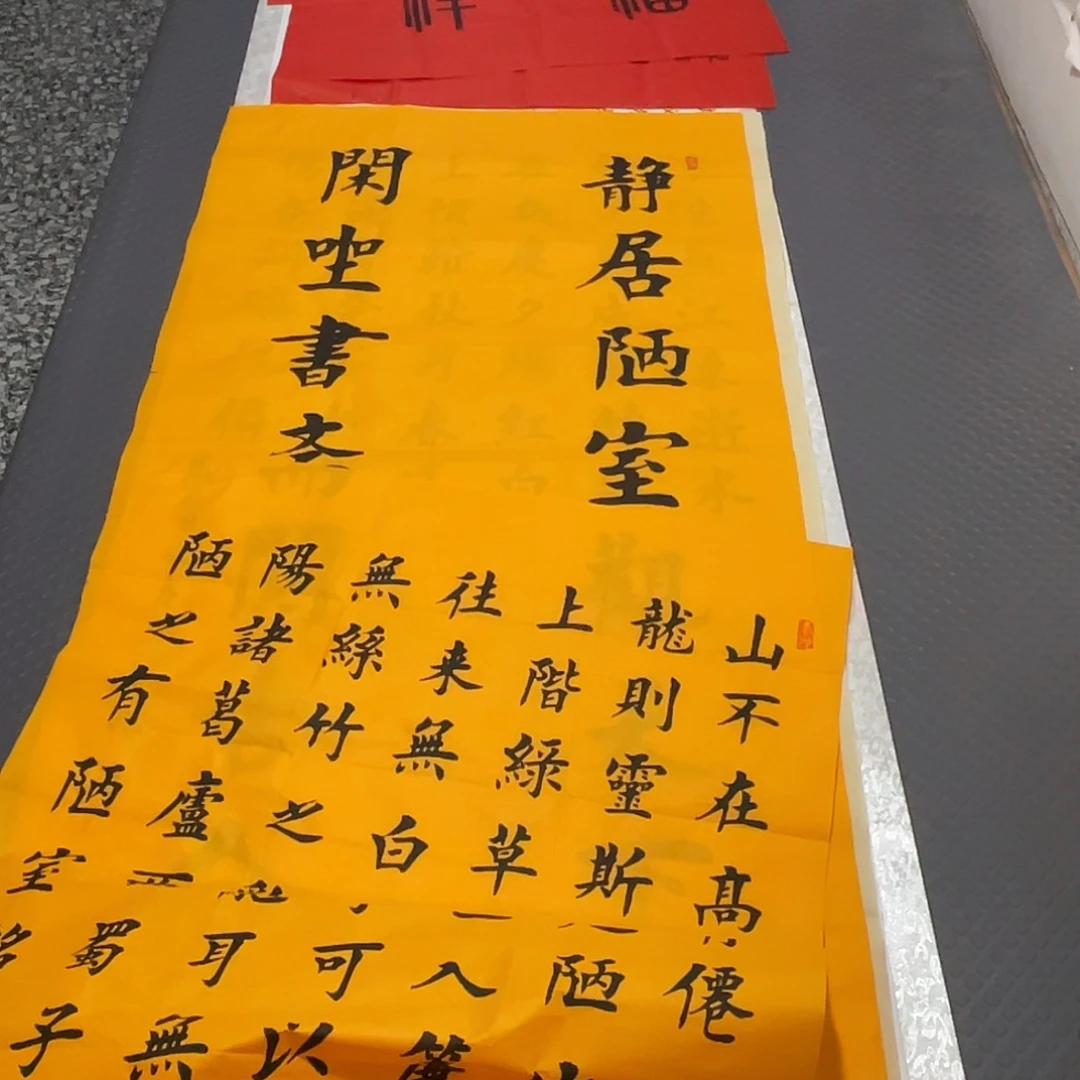 福
祥
静居陋室
閑坐書
山不在高僊
龍則靈斯陋
上階綠草入簾
往来無白可以
無絲竹之耳無
陽諸葛廬蜀子
陋之有陋室